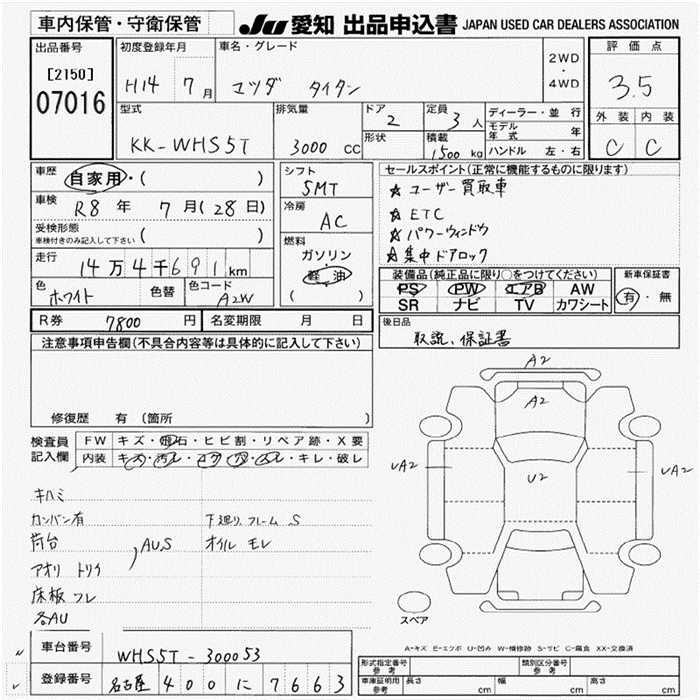 車内保管・守衛保管
JU 愛知 出品申込書 JAPAN USED CAR DEALERS ASSOCIATION
出品番号
[2150]
07016
初度登録年月
H14 7月
車名・グレード
マツダ タイタン
2WD
・
4WD
評価点
3.5
外装 内装
C C
型式
KK-WHS5T
排気量
3000 CC
ドア
2
形状
定員
3人
積載
1500 kg
ディーラー・並行
モデル年式 年
ハンドル 左・右
車歴
自家用・( )
車検
R8年 7月(28日)
受検形態
車検付きのみ記入して下さい ( )
走行
14万4千691km
色
ホワイト
色替
色コード
A2W
シフト
5MT
冷房
AC
燃料
ガソリン
軽油
( )
セールスポイント(正常に機能するものに限ります)
☆ユーザー買取車
☆ETC
☆パワーウィンドウ
☆集中ドアロック
装備品(純正品に限り○をつけてください)
PS PW エアB AW
SR ナビ TV カワシート
新車保証書
有・無
後日品
取説、保証書
R券 7800円
名変期限 月 日
注意事項申告欄(不具合内容等は具体的に記入して下さい)
修復歴 有 (箇所 )
検査員記入欄
FW キズ・飛石・ヒビ割・リペア跡・X要
内装 キズ・汚レ・コゲ・穴・スレ・キレ・破レ
キハミ
カンバン有
荷台
アオリ トリイ
床板 フレ
各AU
AUS
下廻リ、フレーム S
オイル モレ
A2
A2
UA2
U2
UA2
スペア
A-キズ E-エクボ U-凹み W-補修跡 S-サビ C-腐食 XX-交換済
車台番号
WHS5T-300053
登録番号
名古屋 400 に 7663
形式指定番号
参考
類別区分番号
参考
車庫証明用
参考
長さ cm
幅 cm
高さ cm